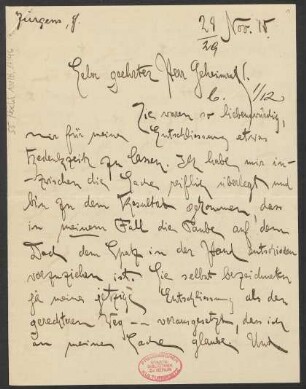 Jürgens, J.
28/29 Nov. 15.
Sehr geehrter Herr Geheimrat!
b. 1/12
Sie waren so liebenswürdig,
mir für meine Entschliessung etwas
Bedenkzeit zu lassen. Ich habe mir in-
zwischen die Sache reiflich überlegt und
bin zu dem Resultat gekommen dass
in meinem Fall die Taube auf dem
Dach dem Spatz in der Hand entschieden
vorzuziehen ist. Sie selbst bezeichneten
ja meine jetzige Entschliessung als den
geraderen Weg -- vorausgesetzt dass ich
an meine Sache glaube. Und